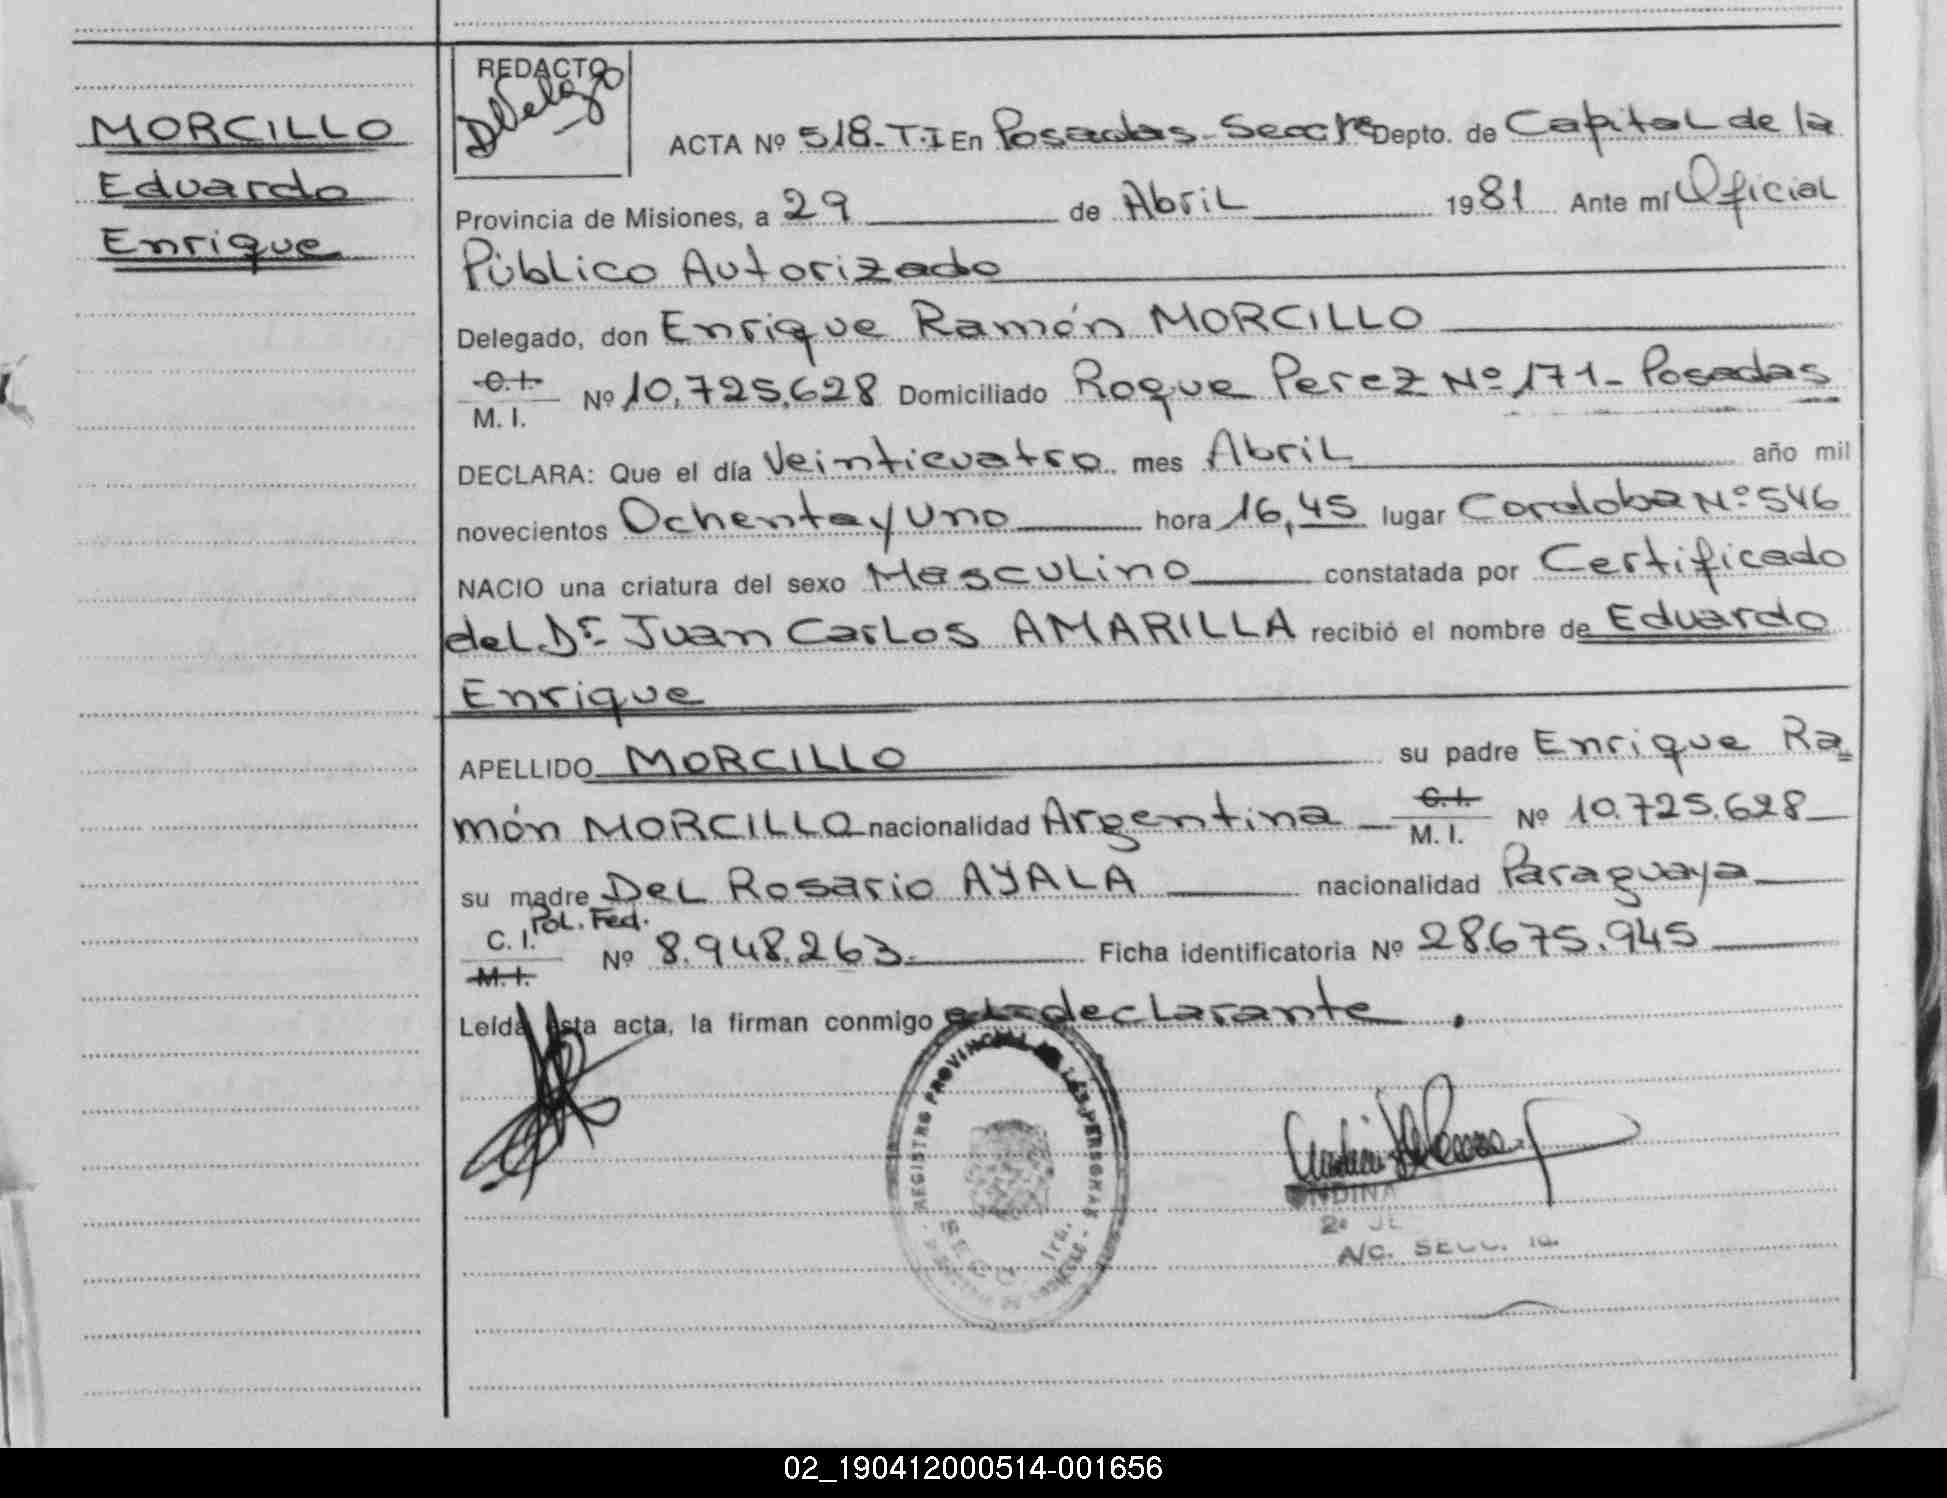 MORCILLO
Eduardo
Enrique
REDACTO
ACTA Nº 518-T.I En Posadas-Secc 1ª Depto. de Capital de la
Provincia de Misiones, a 29 de Abril 1981 Ante mí Oficial
Público Autorizado
Delegado, don Enrique Ramón MORCILLO
C. I.
M. I. Nº 10.725.628 Domiciliado Roque Perez Nº 171- Posadas
DECLARA: Que el día Veinticuatro mes Abril año mil
novecientos Ochenta y Uno hora 16,45 lugar Cordoba Nº 546
NACIO una criatura del sexo Masculino constatada por Certificado
del Dr. Juan Carlos AMARILLA recibió el nombre de Eduardo
Enrique
APELLIDO MORCILLO su padre Enrique Ra=
món MORCILLO nacionalidad Argentina C. I. M. I. Nº 10.725.628
su madre Del Rosario AYALA nacionalidad Paraguaya
C. I. Pol. Fed.
M. I. Nº 8.948.263.- Ficha identificatoria Nº 28.675.945
Leída esta acta, la firman conmigo declarante.
REGISTRO PROVINCIAL DE LAS PERSONAS
SECC. 1ra.
A/C. SECC. 1a.
02_190412000514-001656